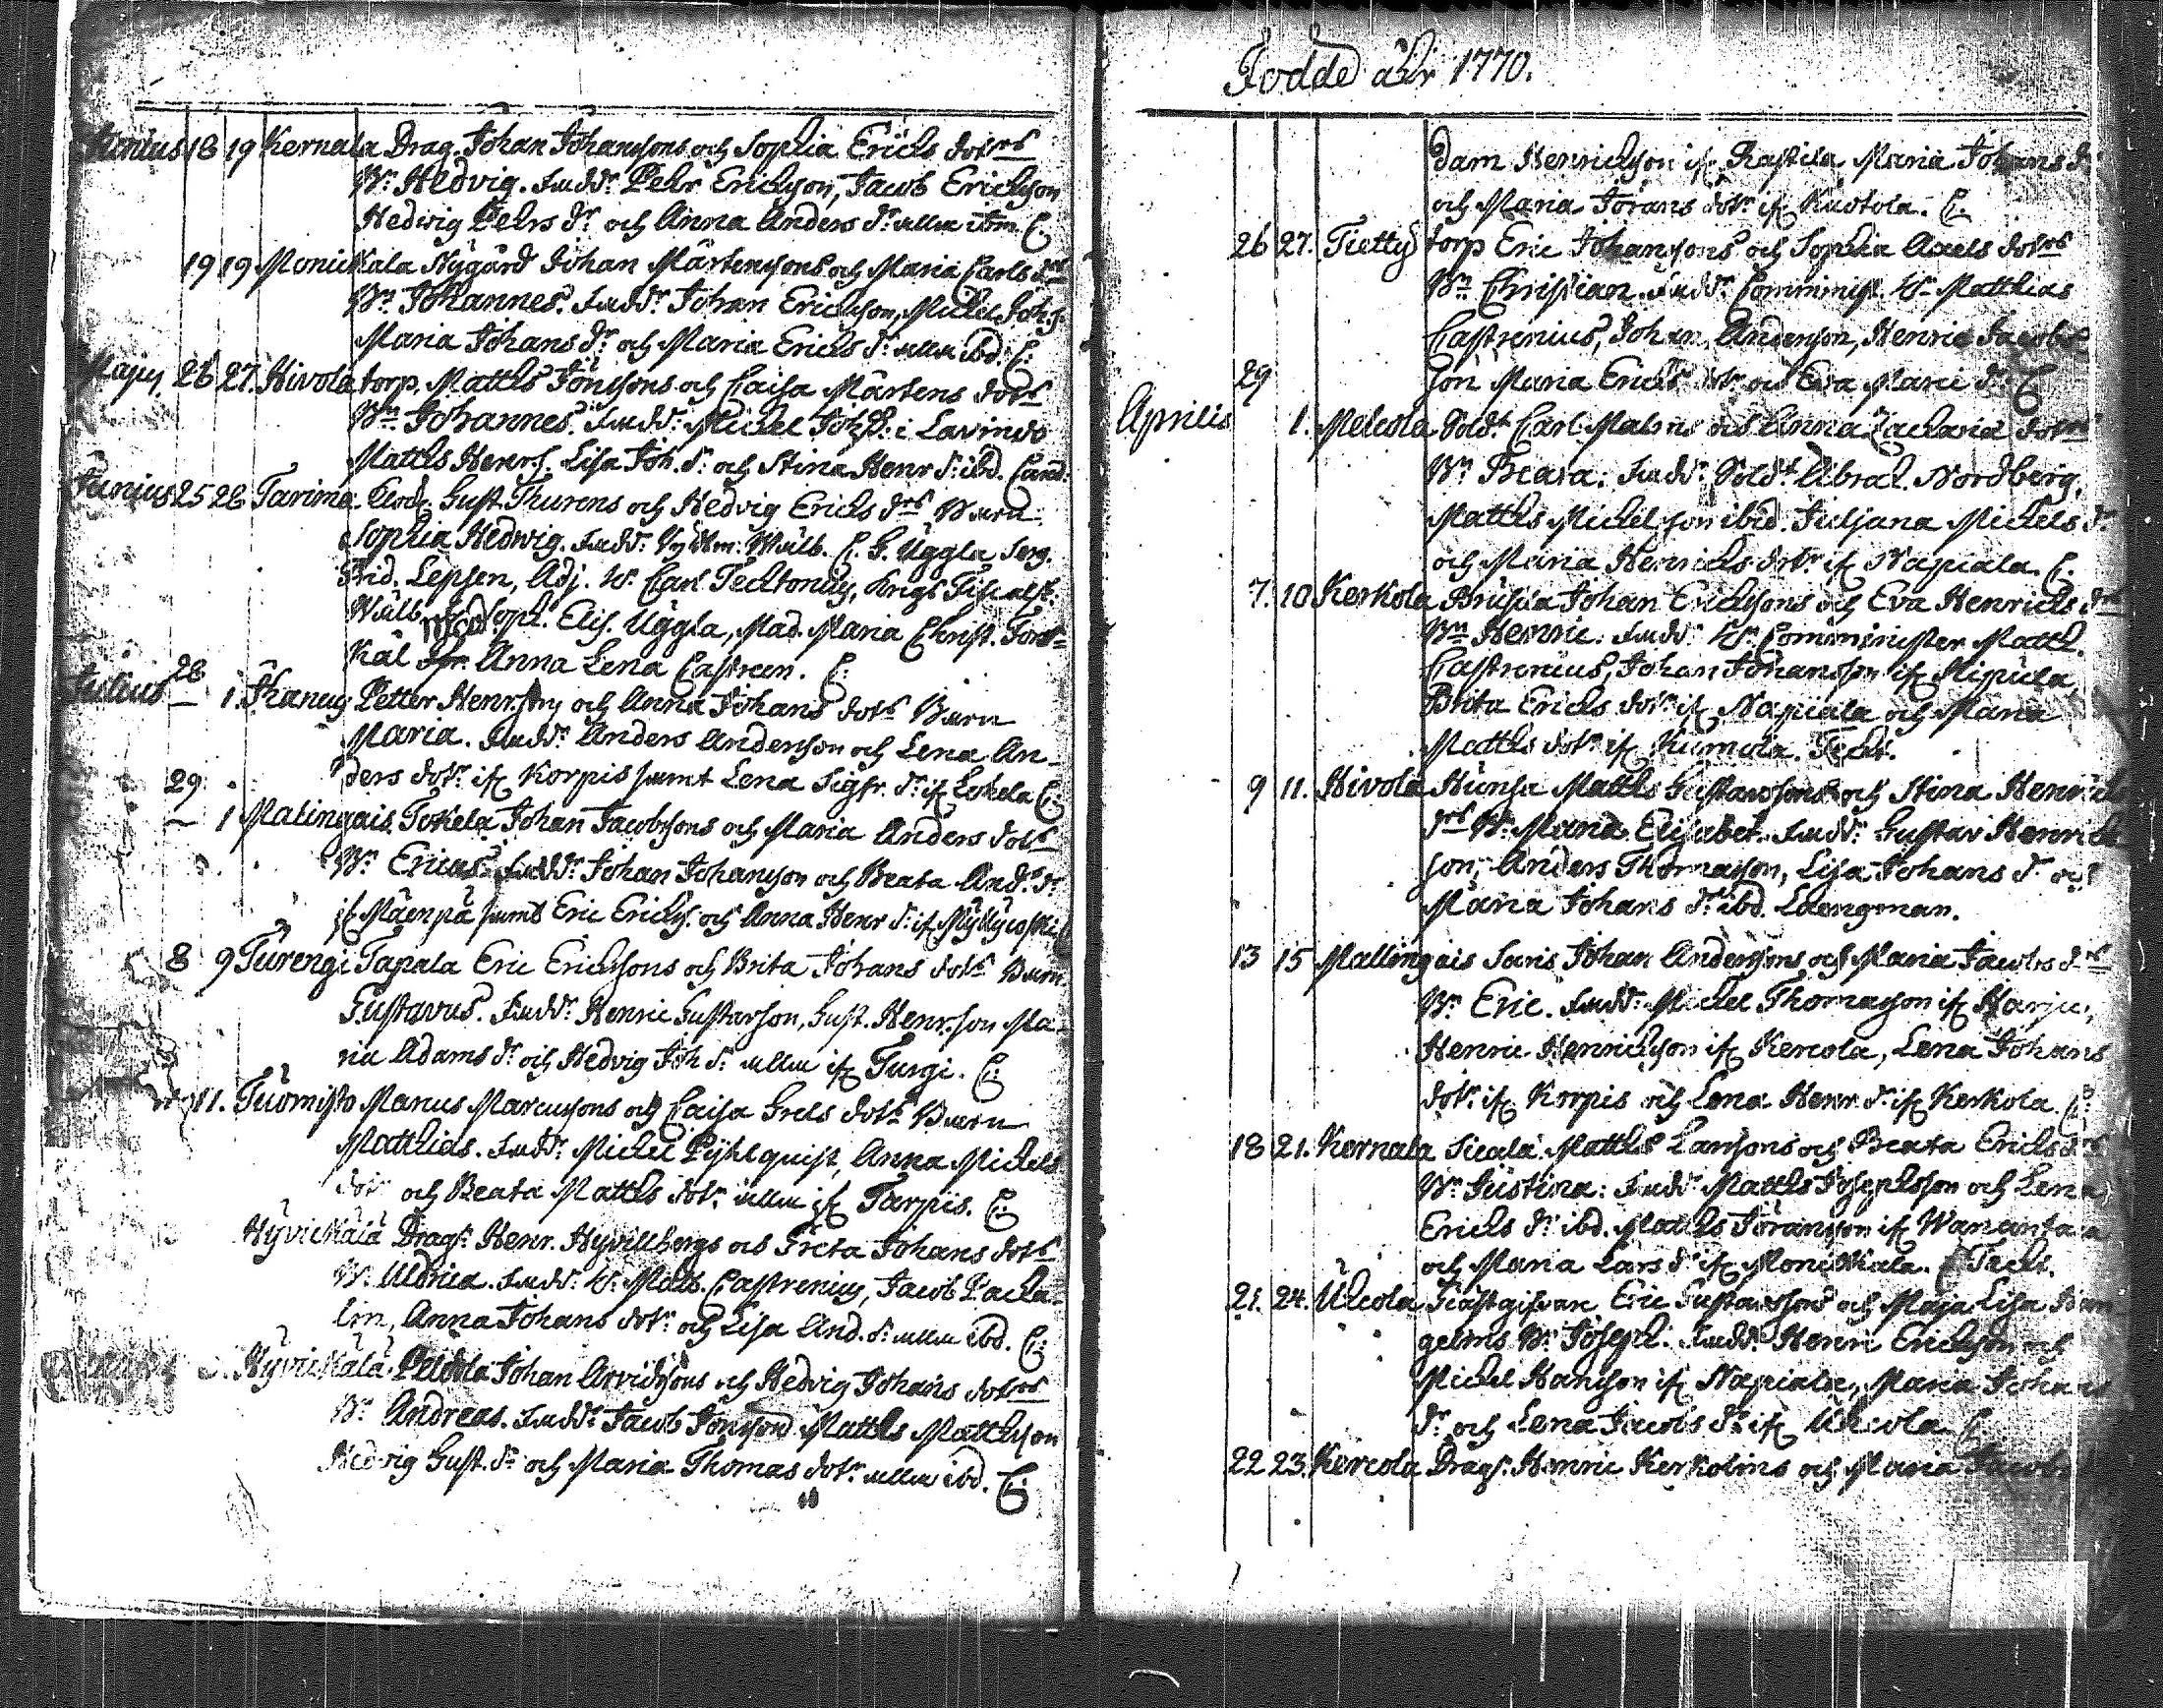 18 19 Kernala Drag. Johan Johanssons och Sophia Erichs dotrs
Bn Hedvig. Fadd: Pehr Erichsson, Jacob Erichson
Hedvig Pehrs dr och Anna Anders dr allm ibm. C:
19 19 Monickala Nygård Johan Mårtenssons och Maria Carls drs
Bn Johannes. Fadd: Johan Erichson, Michel Joh.s.
Maria Johans dr och Maria Erichs dr allm ibd. C:
Majus 26 27. Hivola torp. Matths Jönssons och Caisa Mårtens dotrs
Bn Johannes. Fadd: Michel Joh.s. i Lavindo
Matths Henr.s. Lisa Joh. dr och Stina Henr dr ibd. Cand:
Junius 25 28 Tarima Gust. Thurens och Hedvig Erichs drs Barn
Sophia Hedwig. Fadd: Wälb. C. G. Uggla Serg.
Frid. Lepsen, Adj. Hr Carl Techtonius, Krigs Fiscalsk.
Wälb. Soph. Elis. Uggla, Mad. Maria Christ. Fors-
käl Anna Lena Castreen. C:
Julius 28 — 1. Petter Henr.sons och Anna Johans dotrs Barn
Maria. Fadd: Anders Anderson och Lena An-
ders dotr if Korpis samt Lena Sigfr. dr if C:
29 — 1 Malingais Tokela Johan Jacobssons och Maria Anders dotrs
Bn Ericus. Fadd: Johan Johansson och Beata And. dr
if Mäenpä samt Eric Erichs. och Anna Henr dr if Myllykoski
8 9 Turengi Tapala Eric Erichssons och Brita Johans dotrs Barn
Gustavus. Fadd: Henric Gustafson, Gust. Henr.son Ma-
ria Adams dr och Hedvig Joh dr allm if Turgi. C:
11. Tuomisto Marcus Marcussons och Caisa Grels dotrs Barn
Matthias. Fadd: Michel Pyhlquist, Anna Michels
dotr och Beata Matths dotr allm if Tarpis. C:
Hyvickälä Drag. Henr. Hyvillbergs och Greta Johans dotrs
Bn Uldrica. Fadd: Hr Matth. Castrenius, Jacob Packa-
lin, Anna Johans dotr och Lisa And. dr allm ibd. C:
Hyvickälä Peldola Johan Arvidssons och Hedvig Johans dotrs
Bn Andreas. Fadd: Jacob Jönsson Matths Matthson
Hedvig Gust. dr och Maria Thomas dotr allm ibd. C:
Födde åhr 1770.
dam Henrichson if Rastila Maria Johans dr
och Maria Jörans dotr if Kuotola. C.
26 27. Tiettys torp Eric Johanssons och Sophia Axels dotrs
Bn Christian. Fadd: Comminist. Hr Matthias
Castrenius, Johan Anderson, Henric Jacobs
29 son Maria Erichs dotr och Eva Marci dr C
Aprilis 1. Melcola Soldt Carl Malms och Anna Zachariæ dotrs
Bn Beata: Fadd: Soldt Abrah. Nordberg,
Matths Michelson ibid. Juljana Michels dr
och Maria Henrichs dotr if Napiala. C.
7. 10 Kerkola Brusila Johan Erichssons och Eva Henrichs drs
Bn Henric: Fadd: Hr Comminister Matth.
Castrenius, Johan Johansson if
Brita Erichs dotr if Napiala och Maria
Matths dotr if Kumola. Techt.
9 11. Hivola Hunsa Matths Gustavssons och Stina Henrichs
drs Bn Maria Elisabet. Fadd: Gustav Henrich
son, Anders Thomasson, Lisa Johans dr och
Maria Johans dr ibd. Laengman.
13 15 Mallingais Saris Johan Anderssons och Maria Jacobs drs
Bn Eric. Fadd: Michel Thomasson if Harju,
Henric Henrichson if Kercola, Lena Johans
dotr if Korpis och Lena Henr. dr if Kerkola. C:
18 21. Kernala Matths Larssons och Beata Erichs drs
Bn Gustina: Fadd: Matths Josephsson och Lena
Erichs dr ibd. Matths Jöransson if Wanantaka
och Maria Lars dr if Monickala. Techt.
21. 24. Ulcola Giästgifvare Eric Gustavssons och Maja Lisa
gelins Bn Joseph. Fadd: Henric Erichson och
Michel Hansson if Napiala, Maria Johans
dr och Lena Jacobs dr if Ulcola C.
22 23. Kercola Drag. Henric Kerkolins och Maria Jacobs